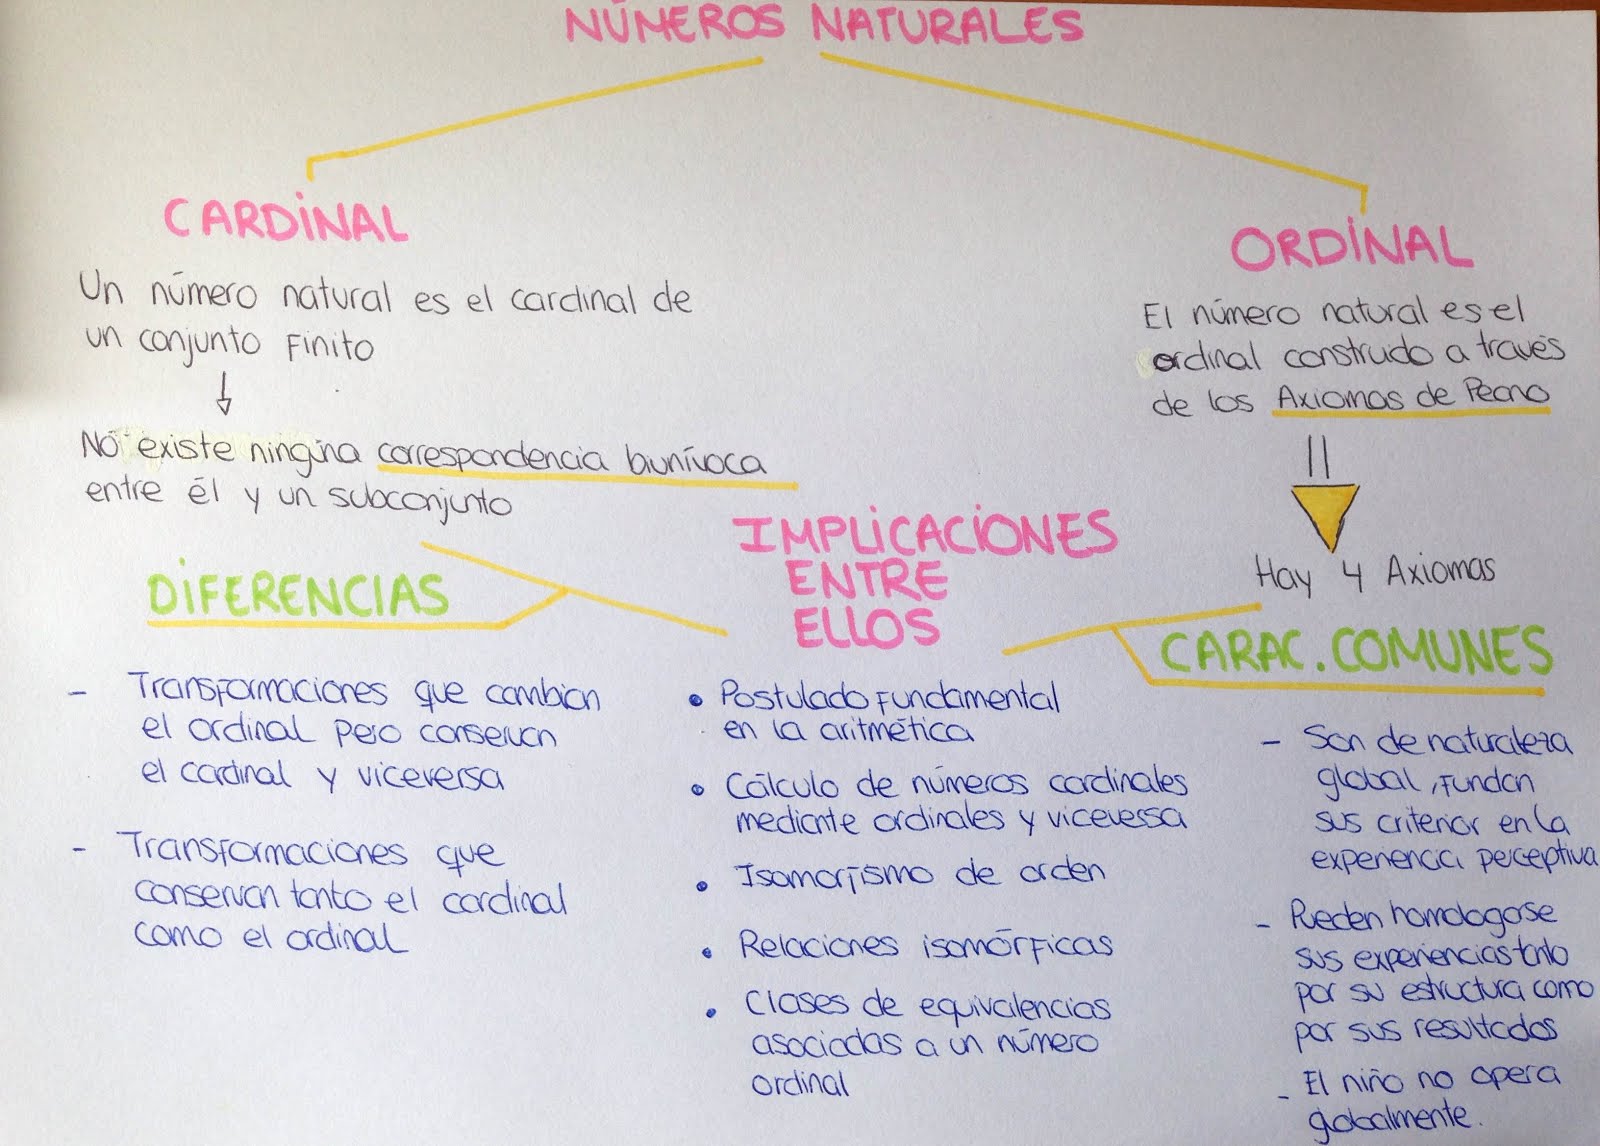 NÚMEROS NATURALES
CARDINAL
Un número natural es el cardinal de
un conjunto Finito
No existe ningina correspondencia biunívoca
entre él y un subconjunto
ORDINAL
El número natural es el
ordinal construido a través
de los Axiomas de Peano
Hay 4 Axiomas
DIFERENCIAS
- Transformaciones que cambian
el ordinal pero conservan
el cardinal y viceversa
- Transformaciones que
conservan tanto el cardinal
como el ordinal
IMPLICACIONES
ENTRE
ELLOS
• Postulado fundamental
en la aritmética
• Cálculo de números cardinales
mediante ordinales y viceversa
• Isomorfismo de orden
• Relaciones isomórficas
• Clases de equivalencias
asociadas a un número
ordinal
CARAC. COMUNES
- Son de naturaleza
global, fundan
sus criterior en la
experiencia perceptiva
- Pueden homologarse
sus experiencias tanto
por su estructura como
por sus resultados
- El niño no opera
globalmente.